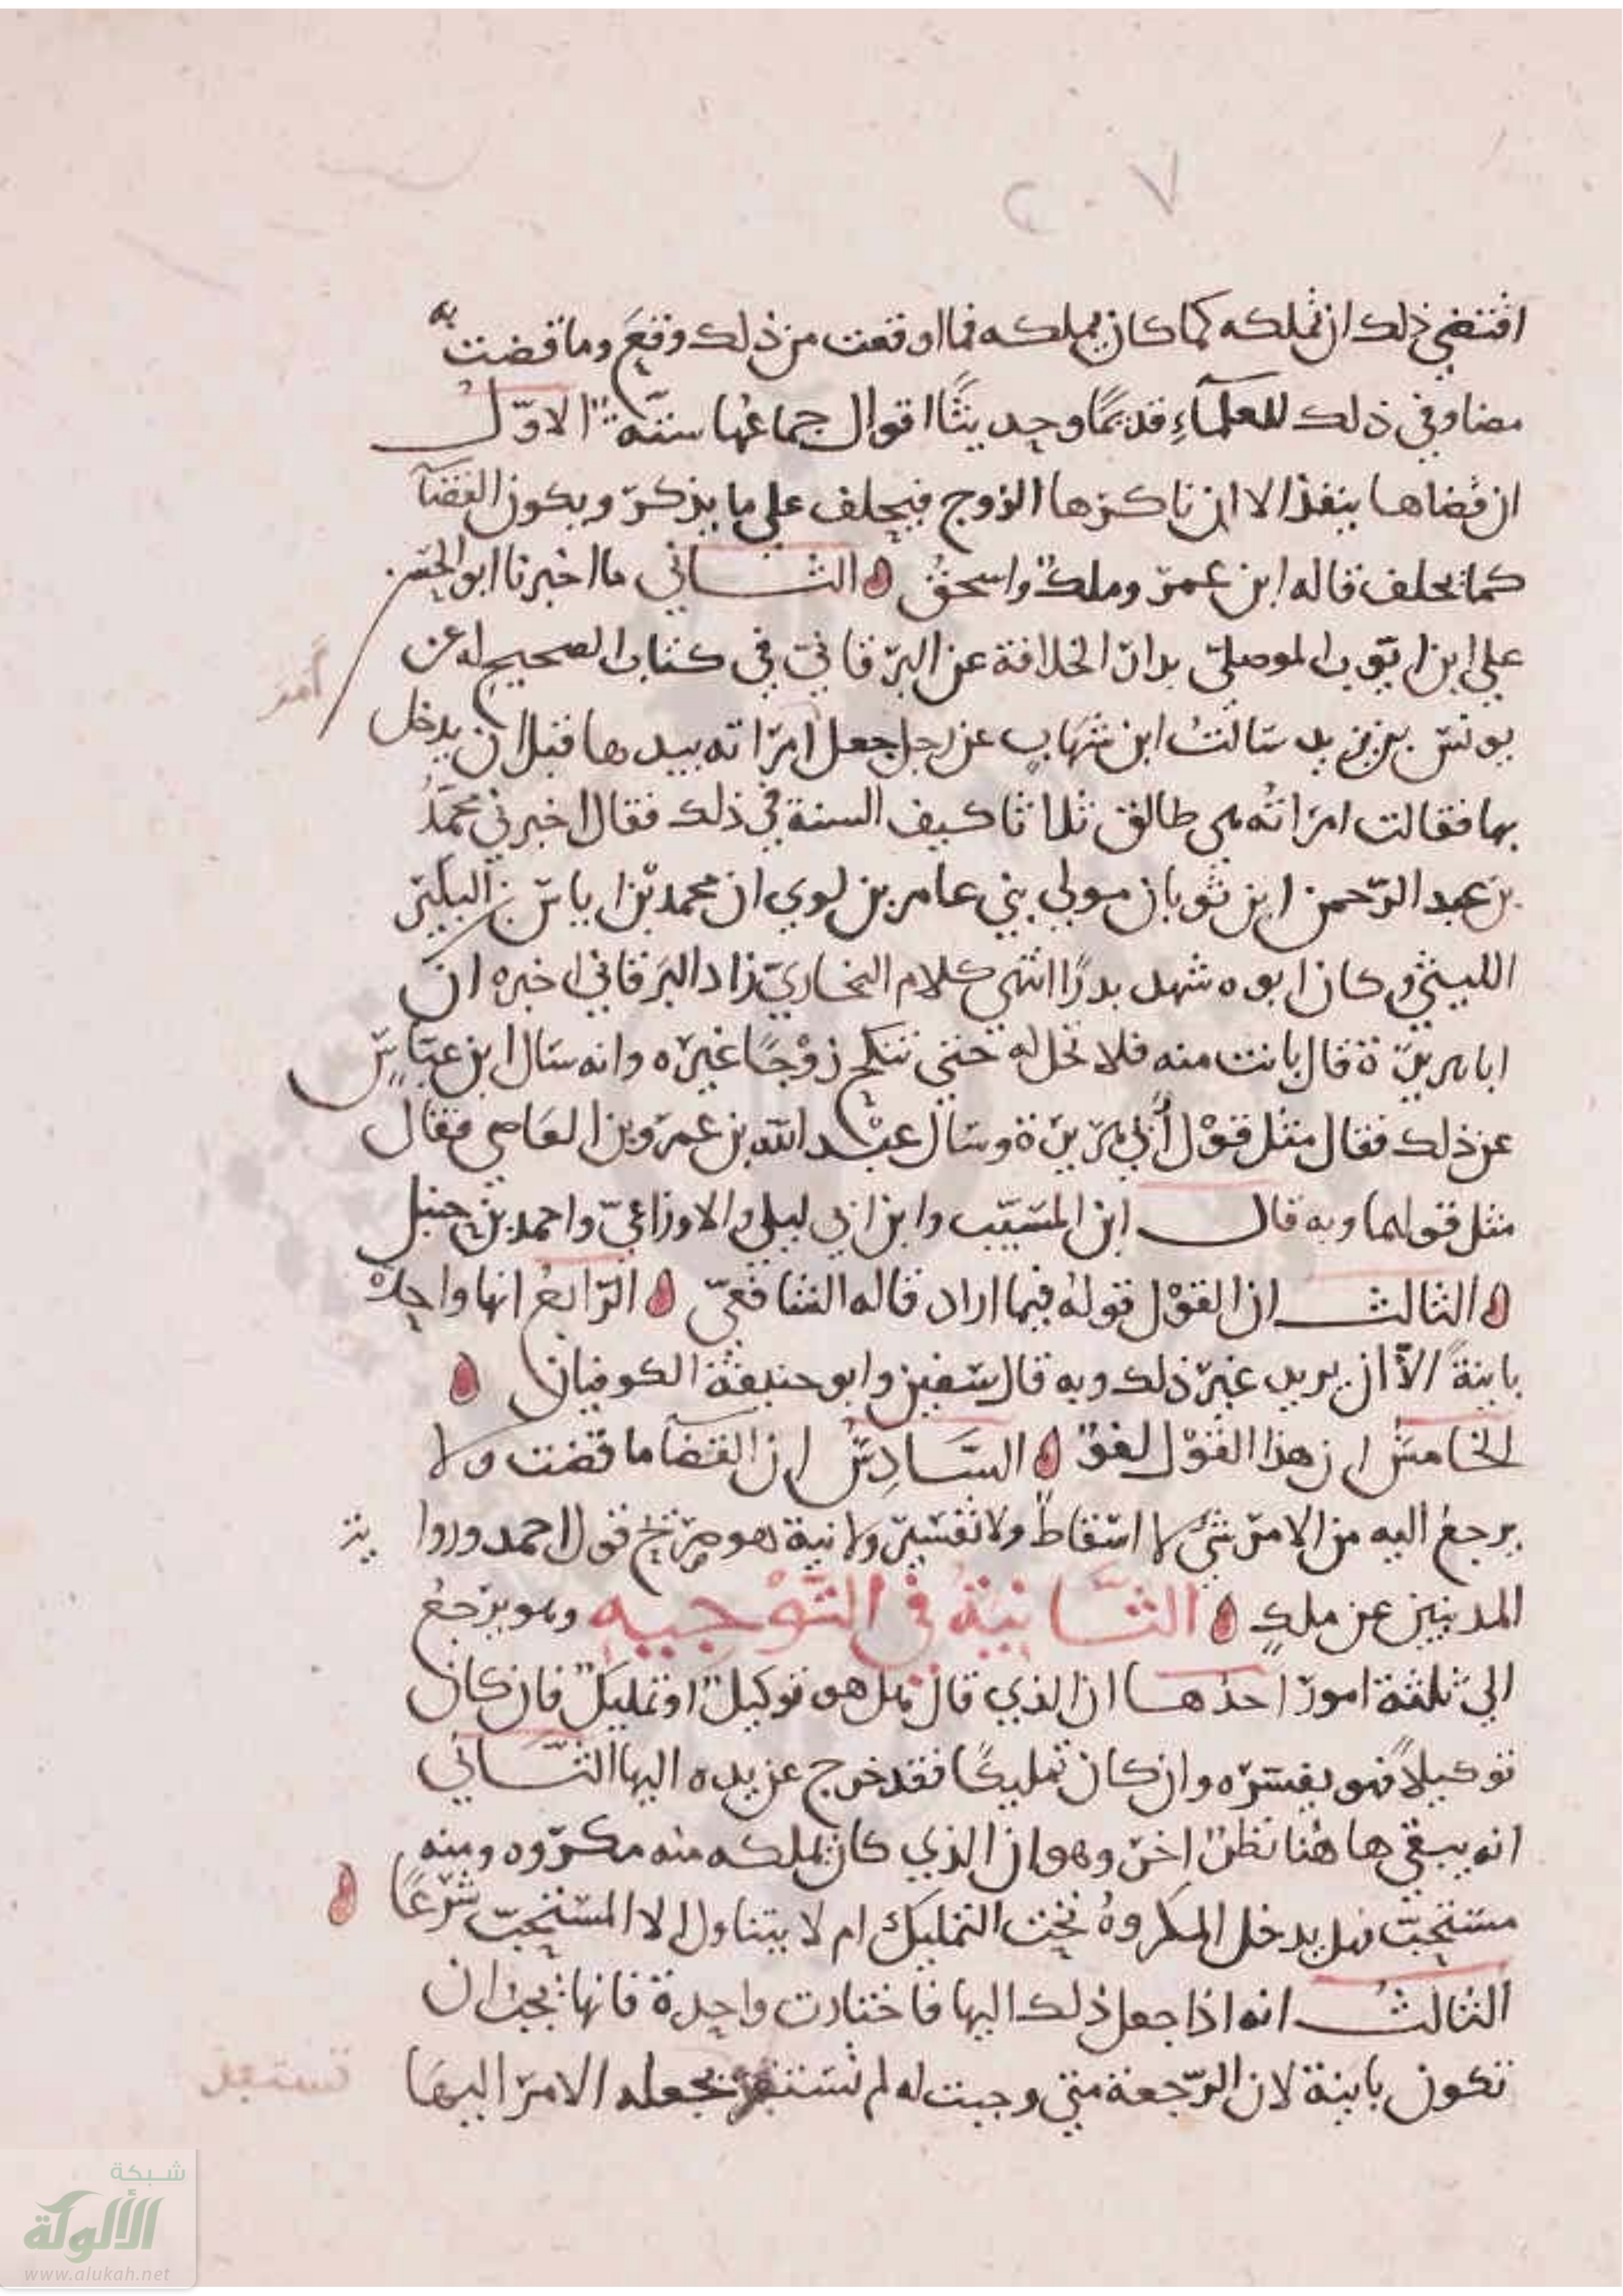 ٢٠٧
اقتضي ذلك ان تملكه كما كان يملكه فما اوقعت من ذلك وقع وما قضت به
مضا وفي ذلك للعلمآء قديمًا وحديثًا اقوال جماعها ستّة الاوّل
ان قضاها ينفذ الا ان ناكرها الزوج فيحلف على ما يذكر ويكون القضآ
كما يحلف قاله ابن عمر وملك واسحق الثاني ما اخبرنا ابو الحسن
علي ابن ايّوب الموصليّ بدار الخلافة عن البرقانيّ في كتاب الصحيح له عن
يونس بن يزيد سالتُ ابن شهاب عن رجل جعل امراته بيدها قبل ان يدخل
أمر
بها فقالت امراتُه هي طالق ثلاثا كيف السنة في ذلك فقال اخبرني محمدُ
بن عبد الرّحمن ابن ثوبان مولي بني عامر بن لوي ان محمد بن اياس بن البكير
الليثي وكان ابوه شهد بدرًا انتهى كلام البخاريّ زاد البرقاني اخبره ان
ابا هريرة قال بانت منه فلا تحل له حتى تنكح زوْجًا غيره وانه سال ابن عبّاسٍ
عن ذلك فقال مثل قوْل أبي هريرة وسال عبْد الله بن عمرو بن العاصي فقال
مثل قولهما وبه قال ابن المسيّب وابن ابي ليلي والاوزاعيّ واحمد بن حنبل
الثالث ان القوْل قولهُ فيما اراد قاله الشافعيّ الرّابعُ انها واحدة
باينةً الاّ ان يريد غير ذلك وبه قال سفين وابو حنيفة الكوفيان
الخامسُ ان هذا القوْل لغوٌ السَّادِسُ ان القضآ ما قضت ولا
يرجعُ اليه من الامر شيٌ لا اسقاطٌ ولا تفسير ولا نية هو صريح قول احمد وروا ية
المدنيين عن ملكٍ الثَّانيَةُ في التَّوْجيهِ وهو يرجعُ
الي ثلثة امور احدُها ان الذي قال هل هو توكيلٌ او تمليكٌ فان كان
توكيلاً فهو يفسّره وان كان تمليكًا فقد خرج عن يده اليها الثَّاني
انه يبقي هاهُنا نظرٌ اخر وهو ان الذي كان يملكه منه مكروه ومنه
مستحبّ فهل يدخل المكروهُ تحت التمليك ام لا يتناول الا المستحبّ شرْعًا
الثالثُ انه اذا جعل ذلك اليها فاختارت واحدة فانها يجب ان
تكون باينة لان الرّجعة متي وجبت له لم تستفد بجعله الامر اليها
تستفد
شبكة
الألوكة
www.alukah.net